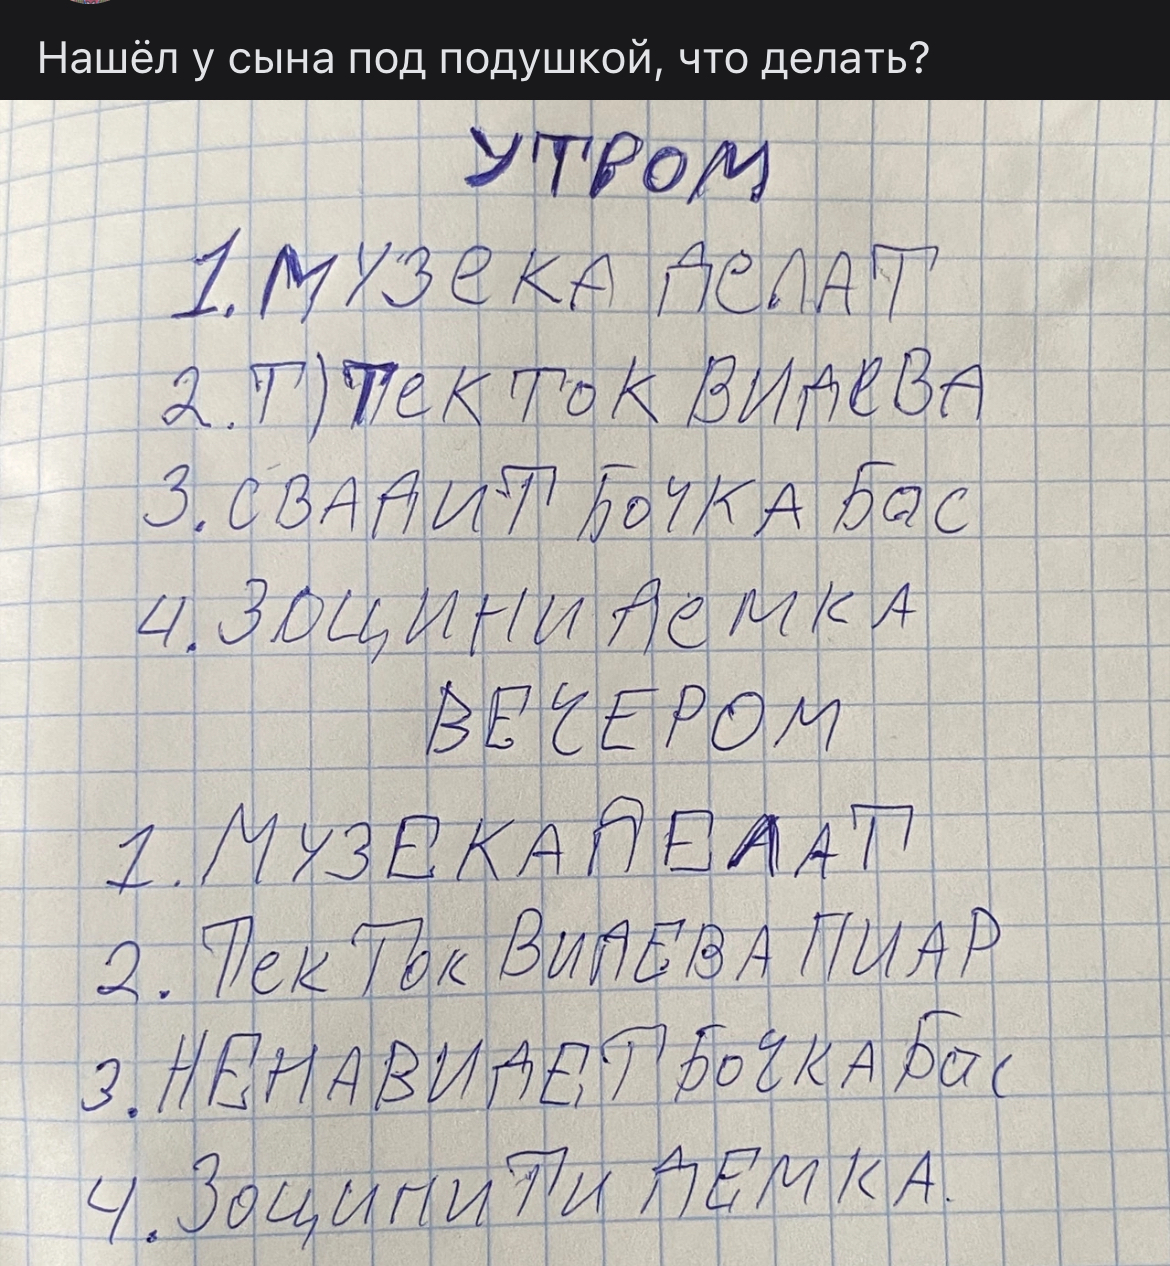 Нашёл у сына под подушкой, что делать?
УТРОМ
1. МУЗЕКА ДЕЛАТ
2. Т) ТЕК ТОК ВИДЕВА
3. СВАДИТ БОЧКА БАС
4. ЗОЩИНИ ДЕМКА
ВЕЧЕРОМ
1. МУЗЕКА ДЕЛАТ
2. ТЕК ТОК ВИДЕВА ПИАР
3. НЕНАВИДЕТ БОЧКА БАС
4. ЗОЩИНИТИ ДЕМКА.